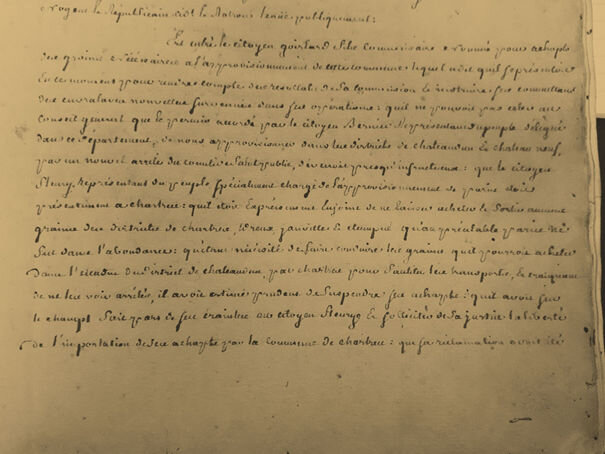 Est entré le citoyen goislard l'un Commissaire nommé pour achapts
des grains nécessaires a l'approvisionnement de cette commune lequel a dit qu'il se présentoit
En ce moment pour rendre compte des resultats de sa commission & instruire ses commettans
des entraves nouvelles survenues dans ses opérations: qu'il ne pouvoit pas celer au
Conseil general que le permis accordé par le citoyen Bernier Représentant du peuple délégué
dans ce Département, de nous approvisionner dans les districts de chateaudun & chateauneuf,
par un nouvel arreté du comité de Salut public, devenoit presqu'infructueux: que le citoyen
fleury Représentant du peuple spécialement chargé de l'approvisionnement de paris étoit
présentement a chartres: qu'il étoit Expressément Enjoint de ne laisser acheter & Sortir aucuns
grains des districts de chartres, Dreux, janville & Etampes qu'au préalable paris ne
fut dans l'abondance: qu'étant nécéssité de faire conduire les grains qu'il pourroit acheter
Dans l'étendue du district de chateaudun, par chartres pour faciliter les transports, & craignant
de ne les voir arrêtés, il avoit estimé prudent de Suspendre ses achapts: qu'il avoit sur
le champ fait part de ses craintes au citoyen fleury & sollicité de sa justice la liberté
de l'importation de ses achapts par la commune de chartres: que sa réclamation avoit été